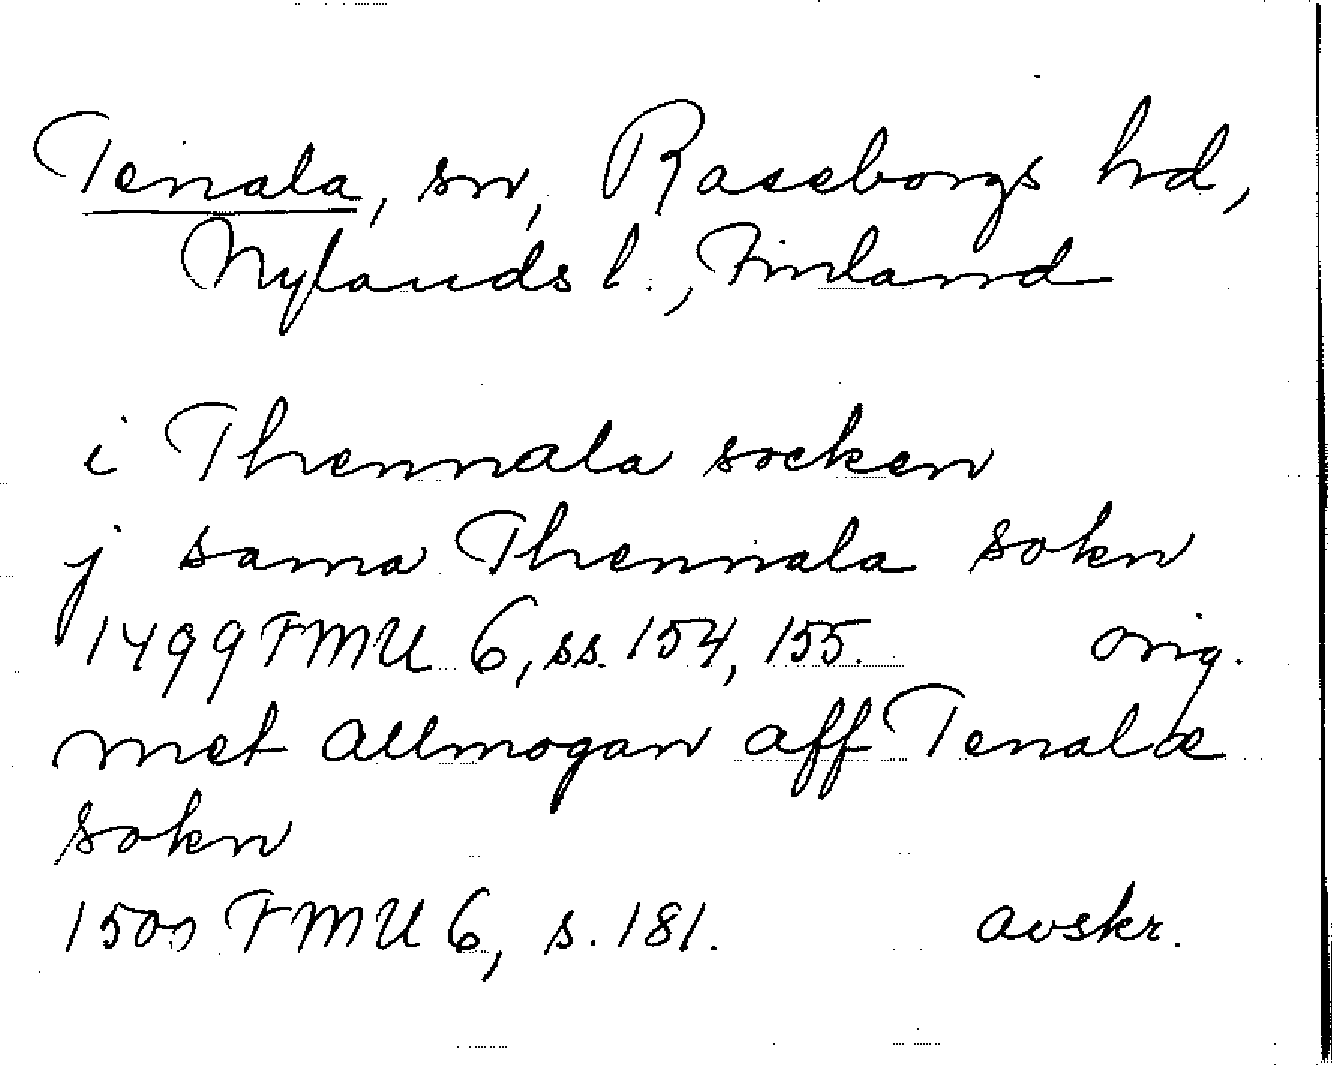 Tenala, sn, Raseborgs hd,
Nylands l., Finland
i Thennala socken
j sama Thennala sokn
1499 FMU 6, ss. 154, 155. orig.
met allmogan aff Tenalæ
sokn
FMU 6, s. 181. avskr.